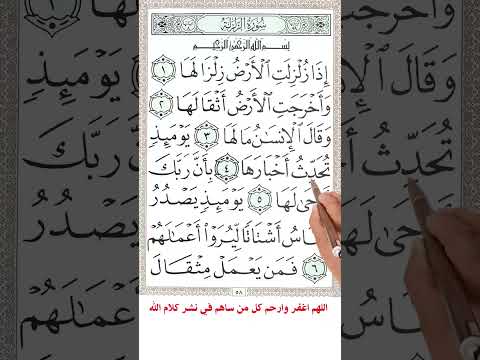 سُورَةُ الزَّلْزَلَةِ
بِسْمِ اللَّهِ الرَّحْمَٰنِ الرَّحِيمِ
إِذَا زُلْزِلَتِ ٱلْأَرْضُ زِلْزَالَهَا ١
وَأَخْرَجَتِ ٱلْأَرْضُ أَثْقَالَهَا ٢
وَقَالَ ٱلْإِنسَٰنُ مَا لَهَا ٣ يَوْمَئِذٍ
تُحَدِّثُ أَخْبَارَهَا ٤ بِأَنَّ رَبَّكَ
لَهَا ٥ يَوْمَئِذٍ يَصْدُرُ
أَشْتَاتًا لِّيُرَوْا۟ أَعْمَٰلَهُمْ
٦ فَمَن يَعْمَلْ مِثْقَالَ
٥٨
اللهم اغفر وارحم كل من ساهم في نشر كلام الله